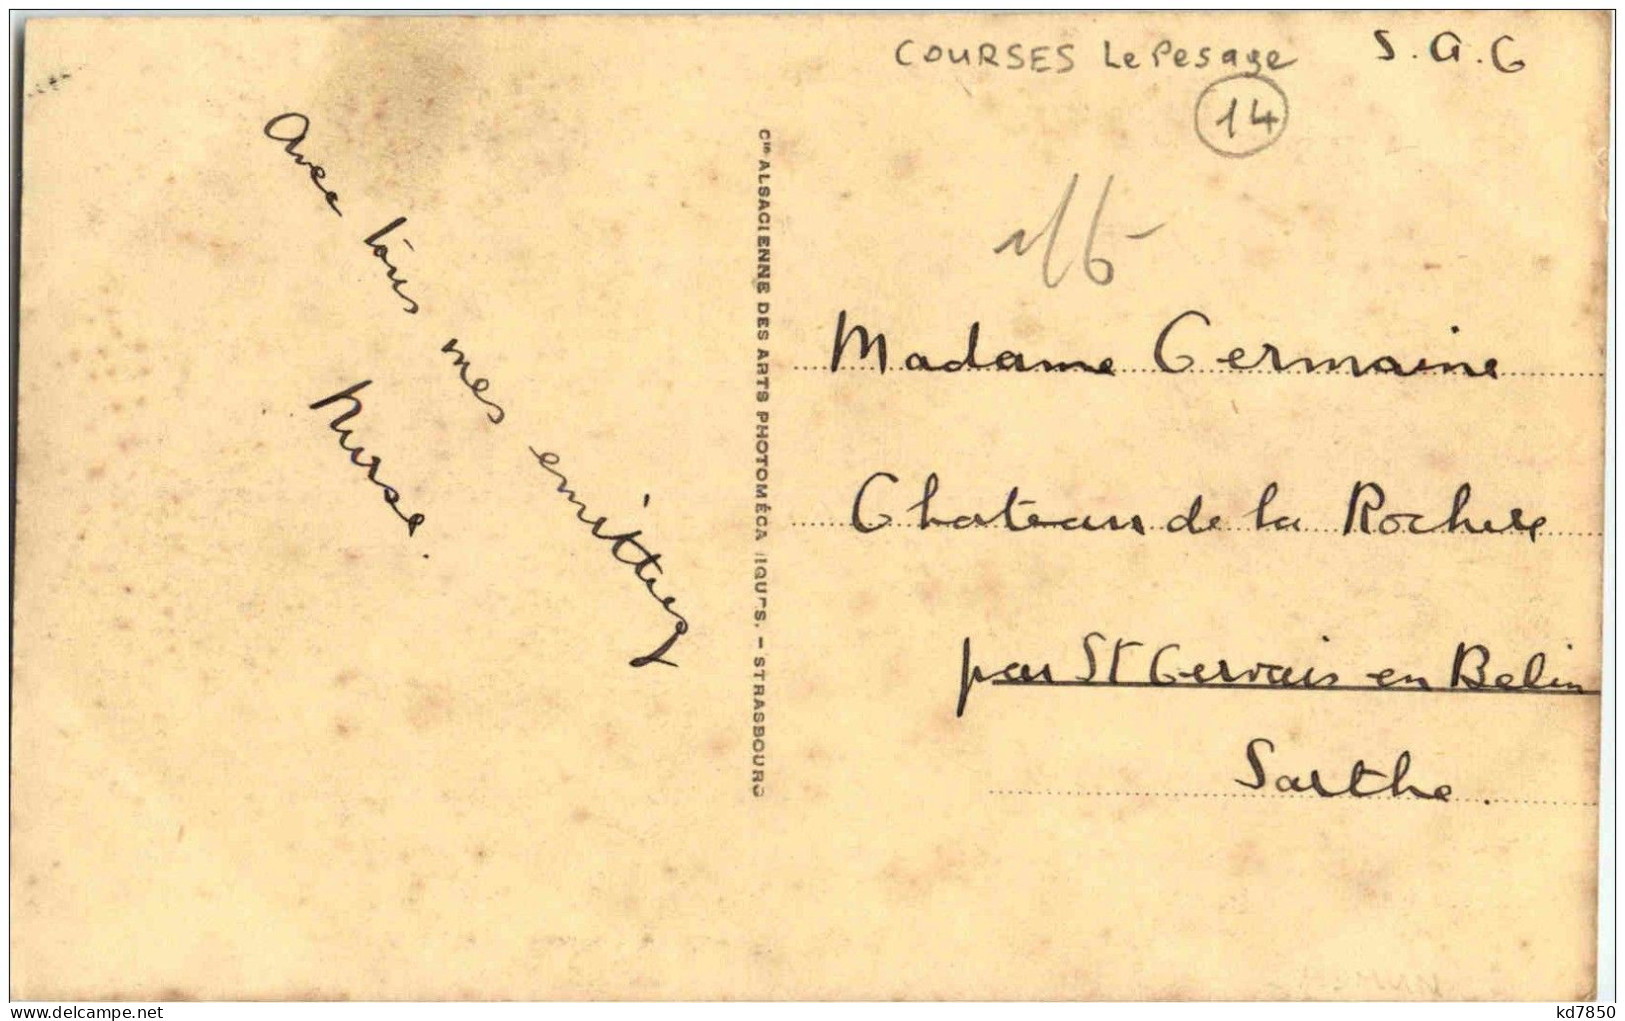 COURSES Le Pesage
S.A.G
14
Avec tous mes
amitiés
Nurse.
Cie ALSACIENNE DES ARTS PHOTOMÉCANIQUES. – STRASBOURG
Madame Germaine
Chateau de la Rochere
par St Gervais en Belin
Sarthe.
delcampe.net
kd7850